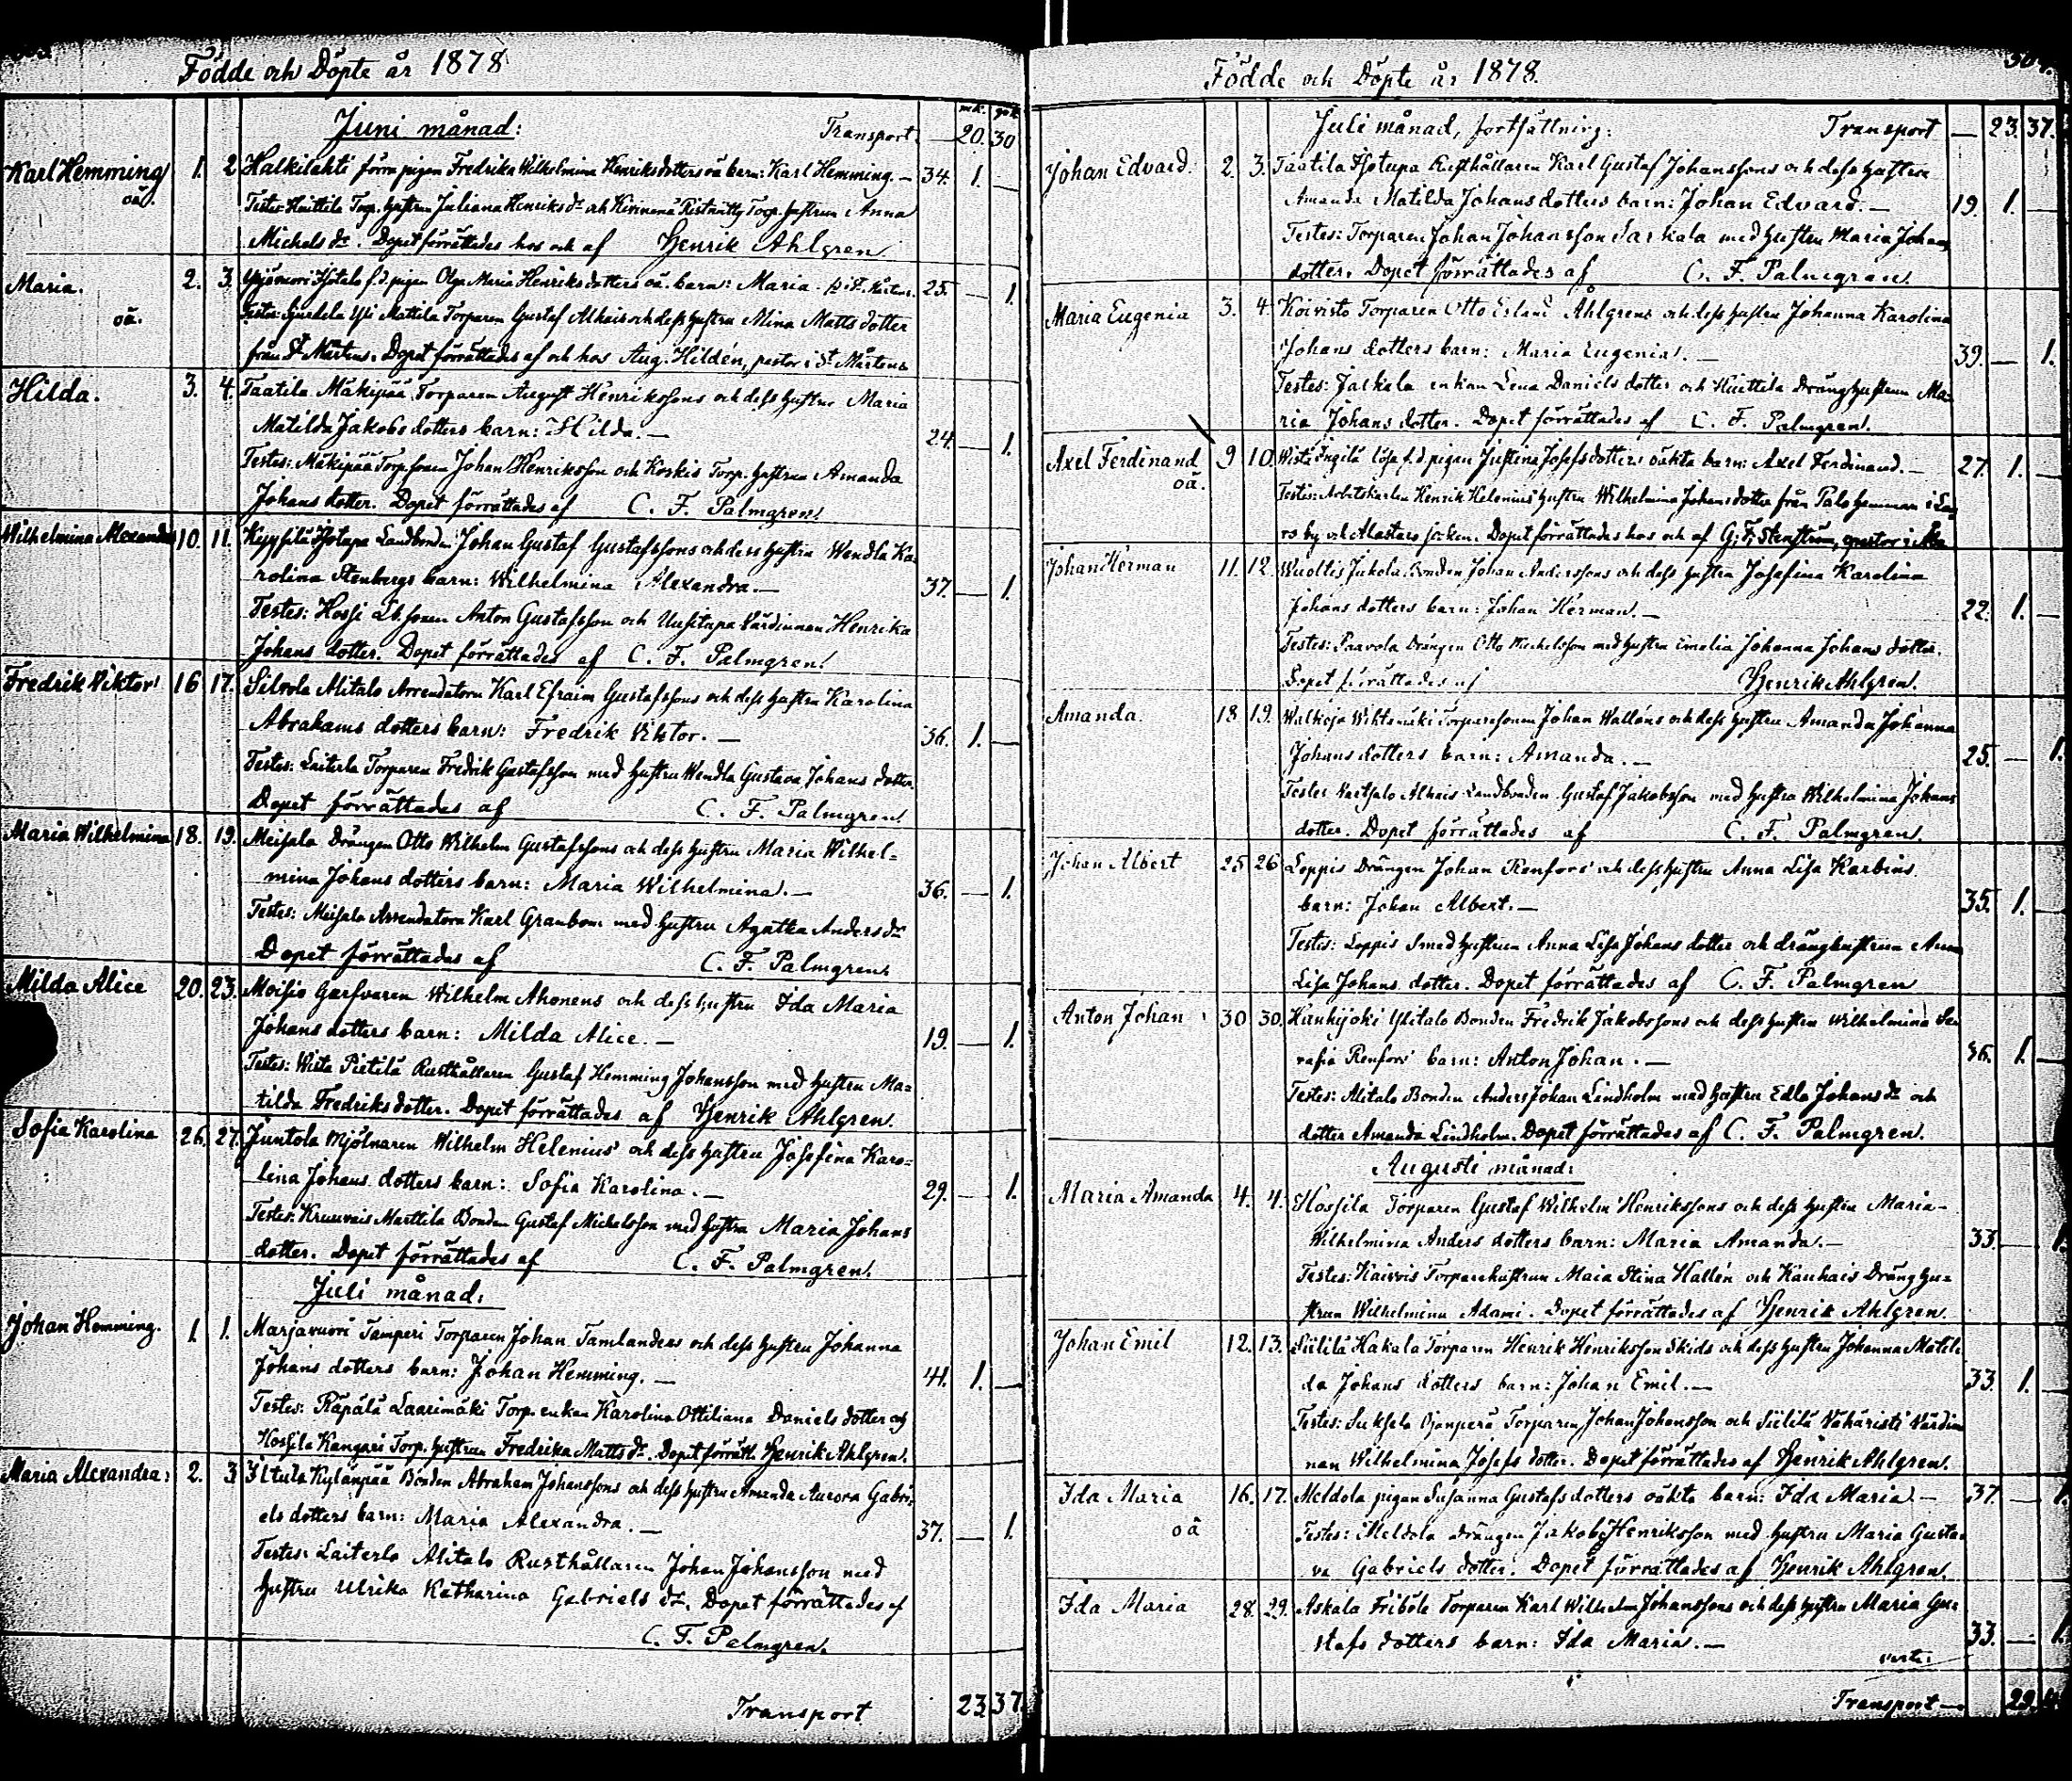 Födde och Döpte år 1878
mk. qvk.
Juni månad: Transport. — 20. 30
Karl Hemming 1. 2 Halkilahti förra pigan Fredrika Wilhelmina Henriksdotters oä barn: Karl Hemming. — 34. 1. —
oä. Testes: Huittila Torp. hustrun Juliana Henriks dr och Kivinenä Ristnätty Torp. hustrun Anna
Michels dr. Dopet förrättades hos och af Henrik Ahlgren
Maria. 2. 3. f.d. pigan Olga Maria Henriksdotters oä. barn: Maria. 25. — 1.
oä. Testes: Mattila Torparen Gustaf Alhais och dess hustru Mina Matts dotter
från St Mårtens. Dopet förrättades af och hos Aug. Hildén, pastor i St Mårtens
Hilda. 3. 4. Taatila Mäkipää Torparen August Henrikssons och dess hustru Maria
Matilda Jakobs dotters barn: Hilda. — 24. — 1.
Testes: Mäkipää Torp. sonen Johan Henriksson och Koskis Torp. hustrun Amanda
Johans dotter. Dopet förrättades af C. F. Palmgren.
Wilhelmina Alexandra 10. 11. Isotupa Landbonden Johan Gustaf Gustafssons och dess hustru Wendla Ka-
rolina Stenbergs barn: Wilhelmina Alexandra. — 37. — 1.
Testes: Hossi Lb. sonen Anton Gustafsson och Uusitupa Värdinnan Henrika
Johans dotter. Dopet förrättades af C. F. Palmgren.
Fredrik Viktor 16 17. Silvola Alitalo Arrendatorn Karl Efraim Gustafssons och dess hustru Karolina
Abrahams dotters barn: Fredrik Viktor. — 36. 1. —
Testes: Laiterla Torparen Fredrik Gustafsson med hustru Wendla Gustava Johans dotter.
Dopet förrättades af C. F. Palmgren
Maria Wilhelmina 18. 19. Meisala Drängen Otto Wilhelm Gustafssons och dess hustru Maria Wilhel-
mina Johans dotters barn: Maria Wilhelmina. — 36. — 1.
Testes: Meisala Arrendatorn Karl Granbom med hustru Agatha Anders dr
Dopet förrättades af C. F. Palmgren
Milda Alice 20. 23. Moisio Garfvaren Wilhelm Ahonens och dess hustru Ida Maria
Johans dotters barn: Milda Alice. — 19. — 1.
Testes: Wista Pietilä Rusthållaren Gustaf Hemming Johansson med hustru Ma-
tilda Fredriks dotter. Dopet förrättades af Henrik Ahlgren.
Sofia Karolina 26. 27. Juntola Mjölnaren Wilhelm Helenius och dess hustru Josefina Karo-
lina Johans dotters barn: Sofia Karolina. — 29. — 1.
Testes: Kruuvais Marttila Bonden Gustaf Michelsson med hustru Maria Johans
dotter. Dopet förrättades af C. F. Palmgren.
Juli månad:
Johan Hemming. 1. 1. Marjavuori Tamperi Torparen Johan Tamlanders och dess hustru Johanna
Johans dotters barn: Johan Hemming. — 44. 1. —
Testes: Räpälä Laarimäki Torp. enkan Karolina Ottiliana Daniels dotter och
Hossila Kangari Torp. hustrun Fredrika Matts dr. Dopet förrätt. Henrik Ahlgren.
Maria Alexandra: 2. 3 Iltula Kylänpää Bonden Abraham Johanssons och dess hustru Amanda Aurora Gabri-
els dotters barn: Maria Alexandra. — 37. — 1.
Testes: Laiterla Alitalo Rusthållaren Johan Johansson med
hustru Ulrika Katharina Gabriels dr. Dopet förrättades af
C. F. Palmgren.
Transport 23. 37
Födde och Döpte år 1878.
Juli månad, fortsättning: Transport — 23. 37.
Johan Edvard. 2. 3. Taatila Isotupa Rusthållaren Karl Gustaf Johanssons och dess hustru
Amanda Matilda Johans dotters barn: Johan Edvard. — 19. 1. —
Testes: Torparen Johan Johansson Sarkala med hustru Maria Johans
dotter. Dopet förrättades af C. F. Palmgren
Maria Eugenia 3. 4. Koivisto Torparen Otto Erland Åhlgrens och dess hustru Johanna Karolina
Johans dotters barn: Maria Eugenia. — 39. — 1.
Testes: Jaskala enkan Lena Daniels dotter och Huittila Dränghustrun Ma-
ria Johans dotter. Dopet förrättades af C. F. Palmgren.
Axel Ferdinand 9 10. Wistä Ingilä lösa f.d. pigan Justina Josefsdotters oäkta barn: Axel Ferdinand. — 27. 1. —
oä. Testes: Arbetskarlen Henrik Helenius hustru Wilhelmina Johans dotter från Palo hemman i La-
ro by och Alastaro socken. Dopet förrättades hos och af G. F. Stenström,
Johan Herman 11. 12. Wuoltis Jukola Bonden Johan Anderssons och dess hustru Josefina Karolina
Johans dotters barn: Johan Herman. — 22. 1. —
Testes: Paavola Drängen Otto Michelsson med hustru Emelia Johanna Johans dotter.
Dopet förrättades af Henrik Ahlgren.
Amanda. 18. 19. Walkoja Torparesonen Johan Walléns och dess hustru Amanda Johanna
Johans dotters barn: Amanda. — 25. — 1.
Testes Alhais Landbonden Gustaf Jakobsson med hustru Wilhelmina Johans
dotter. Dopet förrättades af C. F. Palmgren.
Johan Albert 25 26 Loppis Drängen Johan Renfors och dess hustru Anna Lisa Karbins
barn: Johan Albert. — 35. 1. —
Testes: Loppis Smedhustrun Anna Lisa Johans dotter och dränghustrun Anna
Lisa Johans dotter. Dopet förrättades af C. F. Palmgren
Anton Johan 30 30. Kauhijoki Ylitalo Bonden Fredrik Jakobssons och dess hustru Wilhelmina Se-
rafia Renfors barn: Anton Johan. — 36. 1. —
Testes: Alitalo Bonden Anders Johan Lindholm med hustru Edla Johans dr och
dotter Amanda Lindholm. Dopet förrättades af C. F. Palmgren.
Augusti månad:
Maria Amanda 4. 4. Hossila Torparen Gustaf Wilhelm Henrikssons och dess hustru Maria
Wilhelmina Anders dotters barn: Maria Amanda. — 33. — 1.
Testes: Kaivois Torparehustrun Maia Stina Hallén och Kauhais Dränghu-
strun Wilhelmina Adami. Dopet förrättades af Henrik Ahlgren.
Johan Emil 12. 13. Siililä Hakala Torparen Henrik Henriksson Skids och dess hustru Johanna Matil-
da Johans dotters barn: Johan Emil. — 33. 1. —
Testes: Suksela Ojanperä Torparen Johan Johansson och Siililä Vähäristi Värdin-
nan Wilhelmina Josefs dotter. Dopet förrättades af Henrik Ahlgren.
Ida Maria 16. 17. Meldola pigan Susanna Gustafs dotters oäkta barn: Ida Maria. — 37. — 1.
oä Testes: Meldola Drängen Jakob Henriksson med hustru Maria Gusta-
va Gabriels dotter. Dopet förrättades af Henrik Ahlgren.
Ida Maria 28. 29. Askala Friböle Torparen Karl Wilhelm Johanssons och dess hustru Maria Gu-
stafs dotters barn: Ida Maria. — 33. — 1.
verte.
Transport —